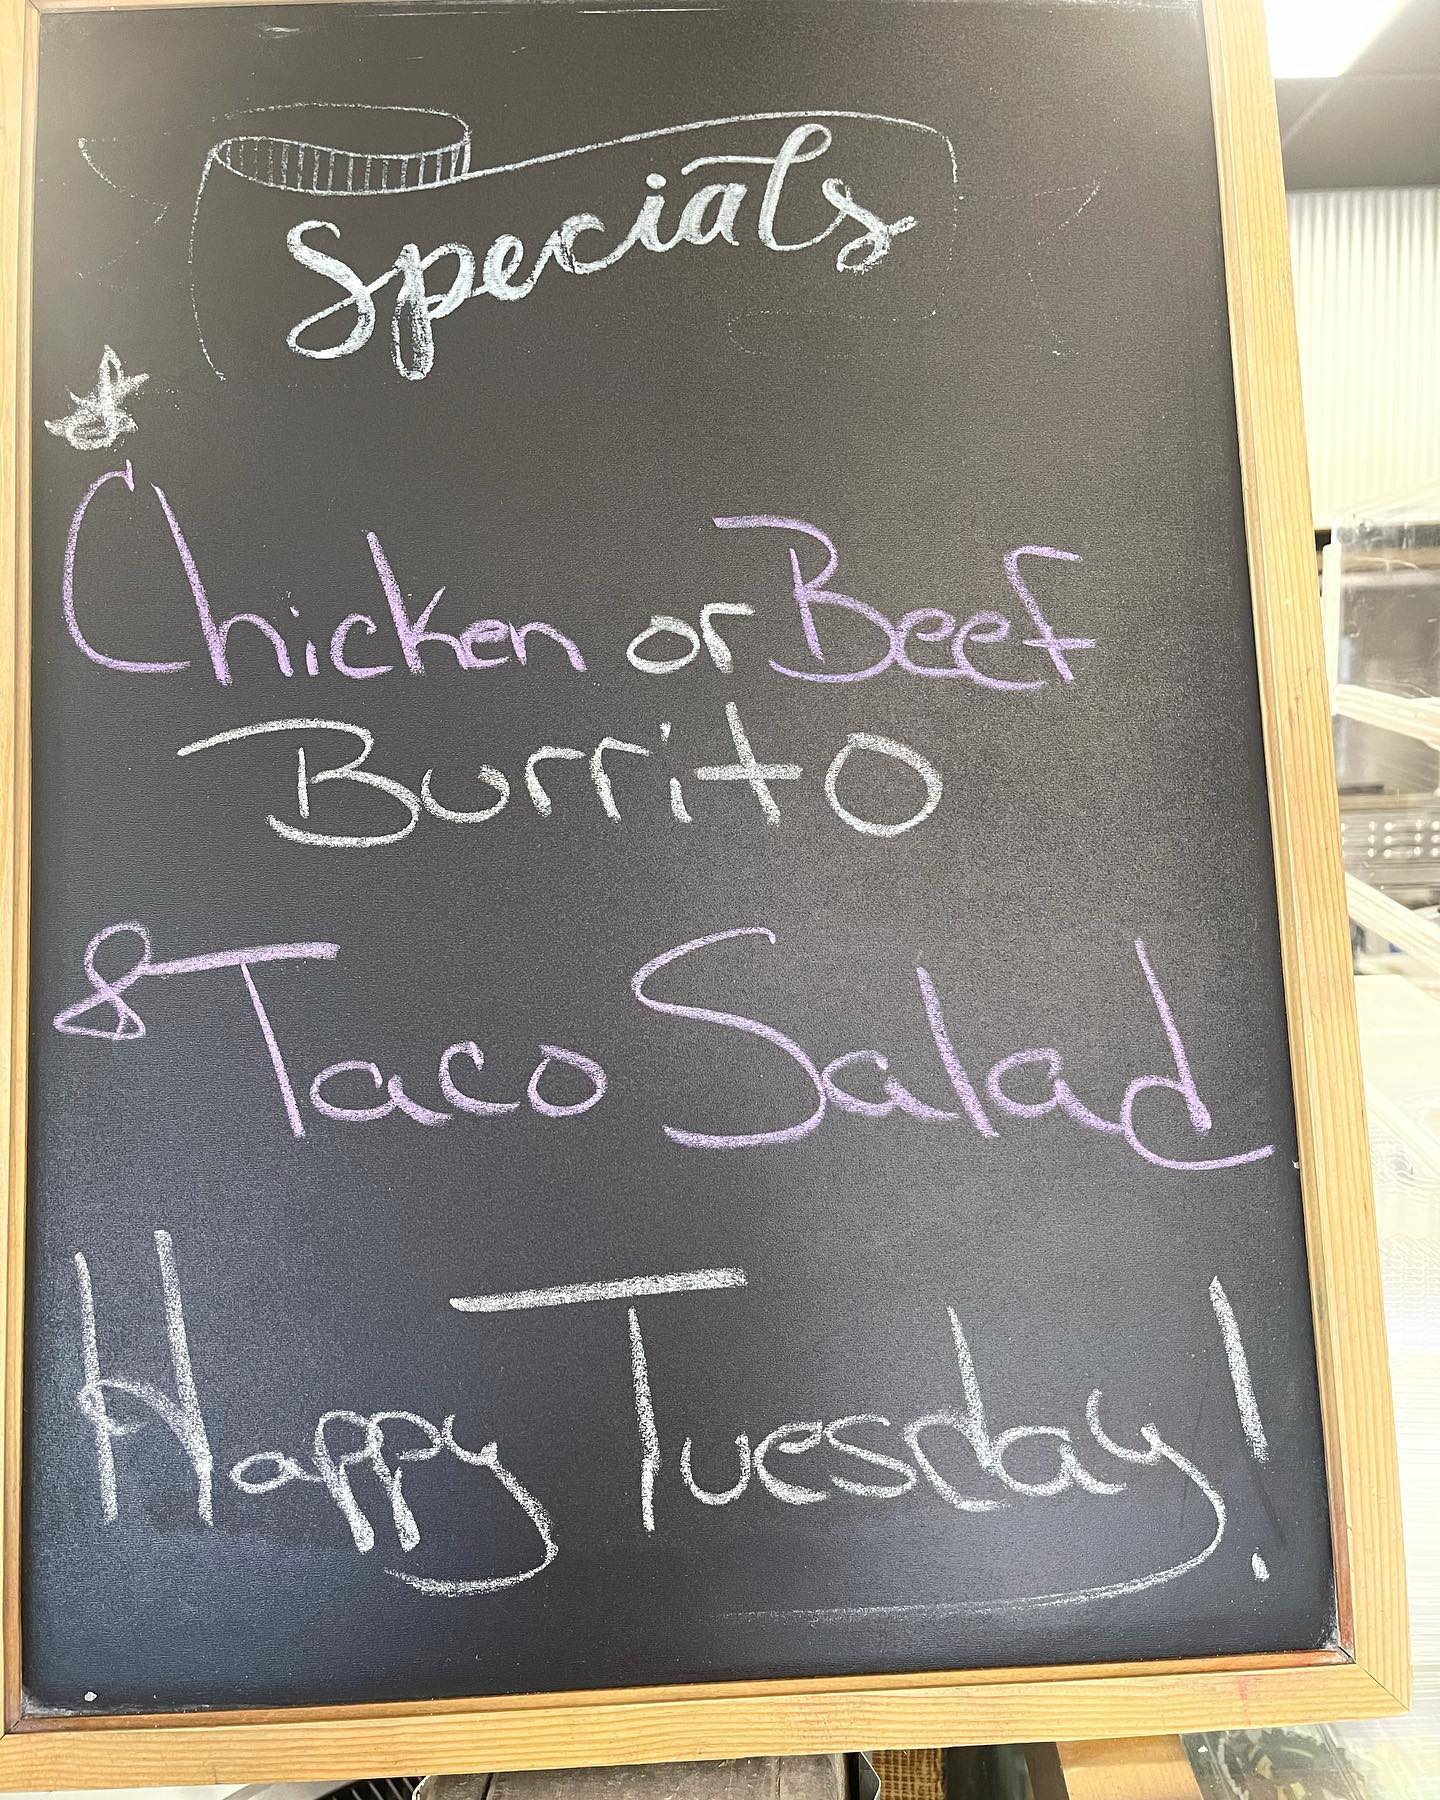 Specials
Chicken or Beef
Burrito
& Taco Salad
Happy Tuesday!